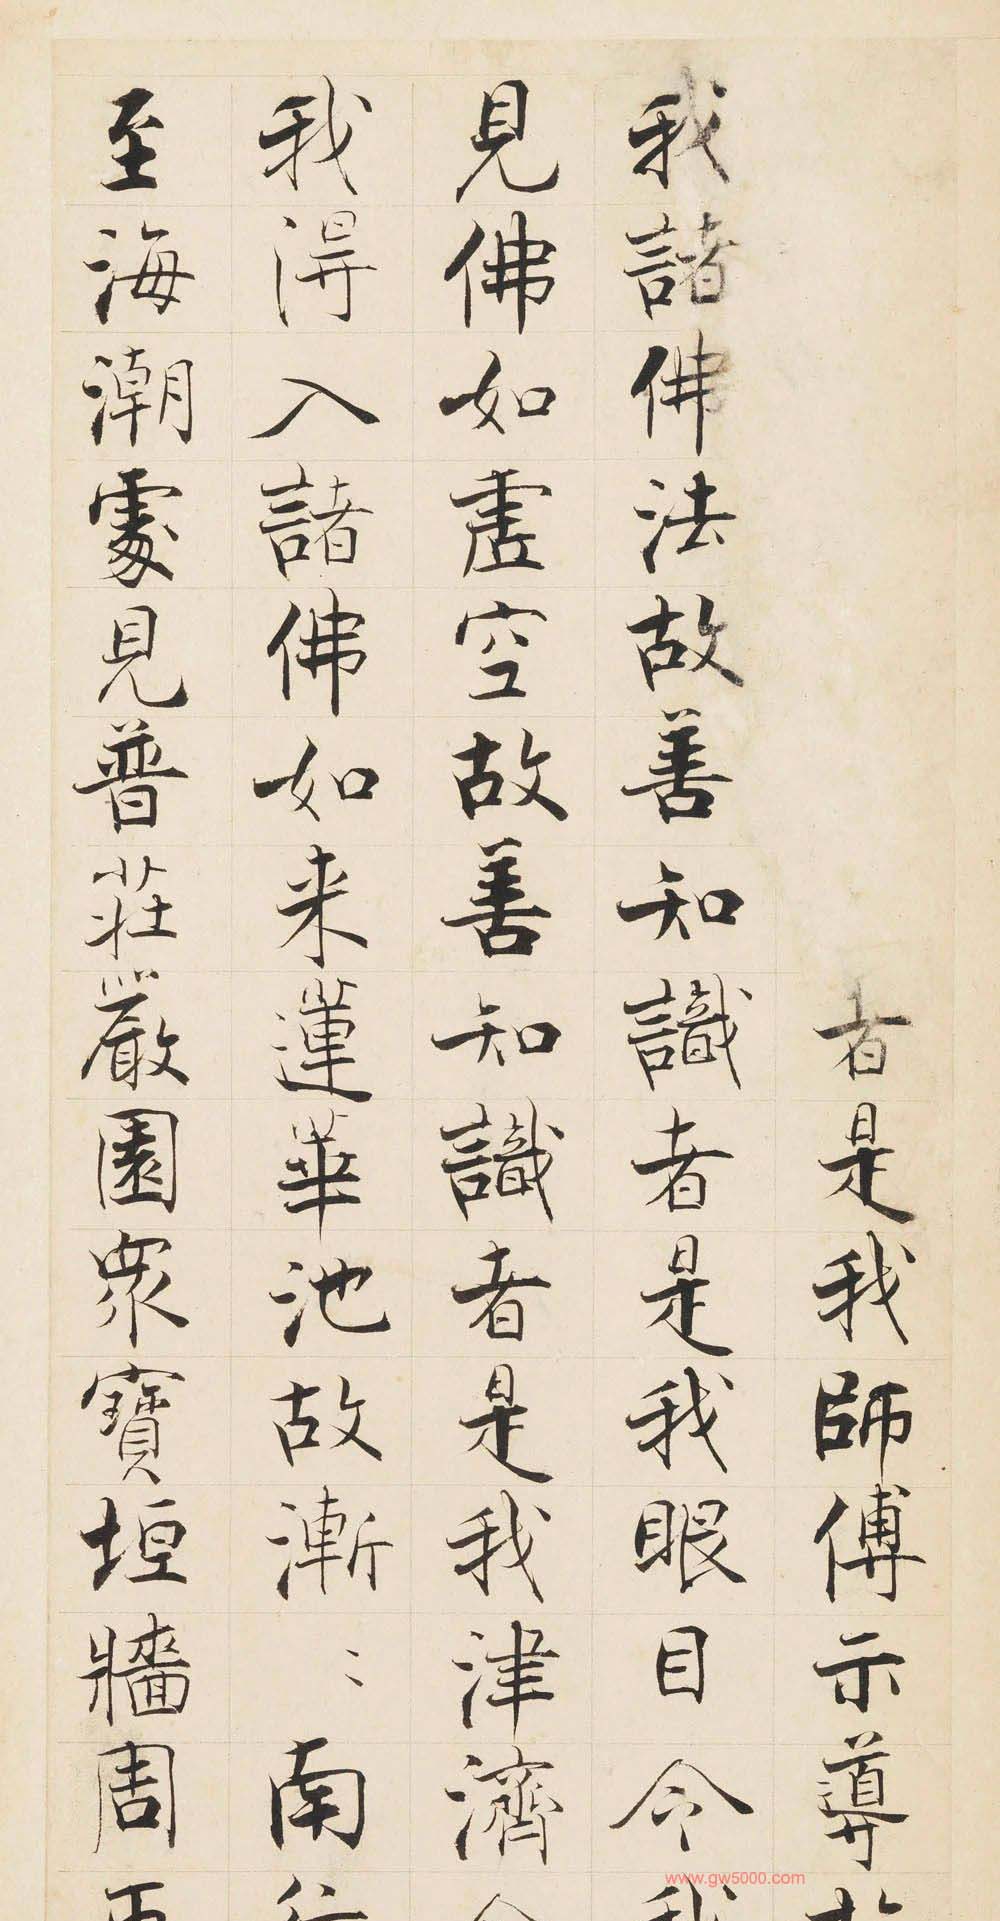 者是我師傅示導
我諸佛法故善知識者是我眼目令
見佛如虛空故善知識者是我津濟
我得入諸佛如来蓮華池故漸〻南
至海潮處見普莊嚴園衆寶垣牆周
www.gw5000.com